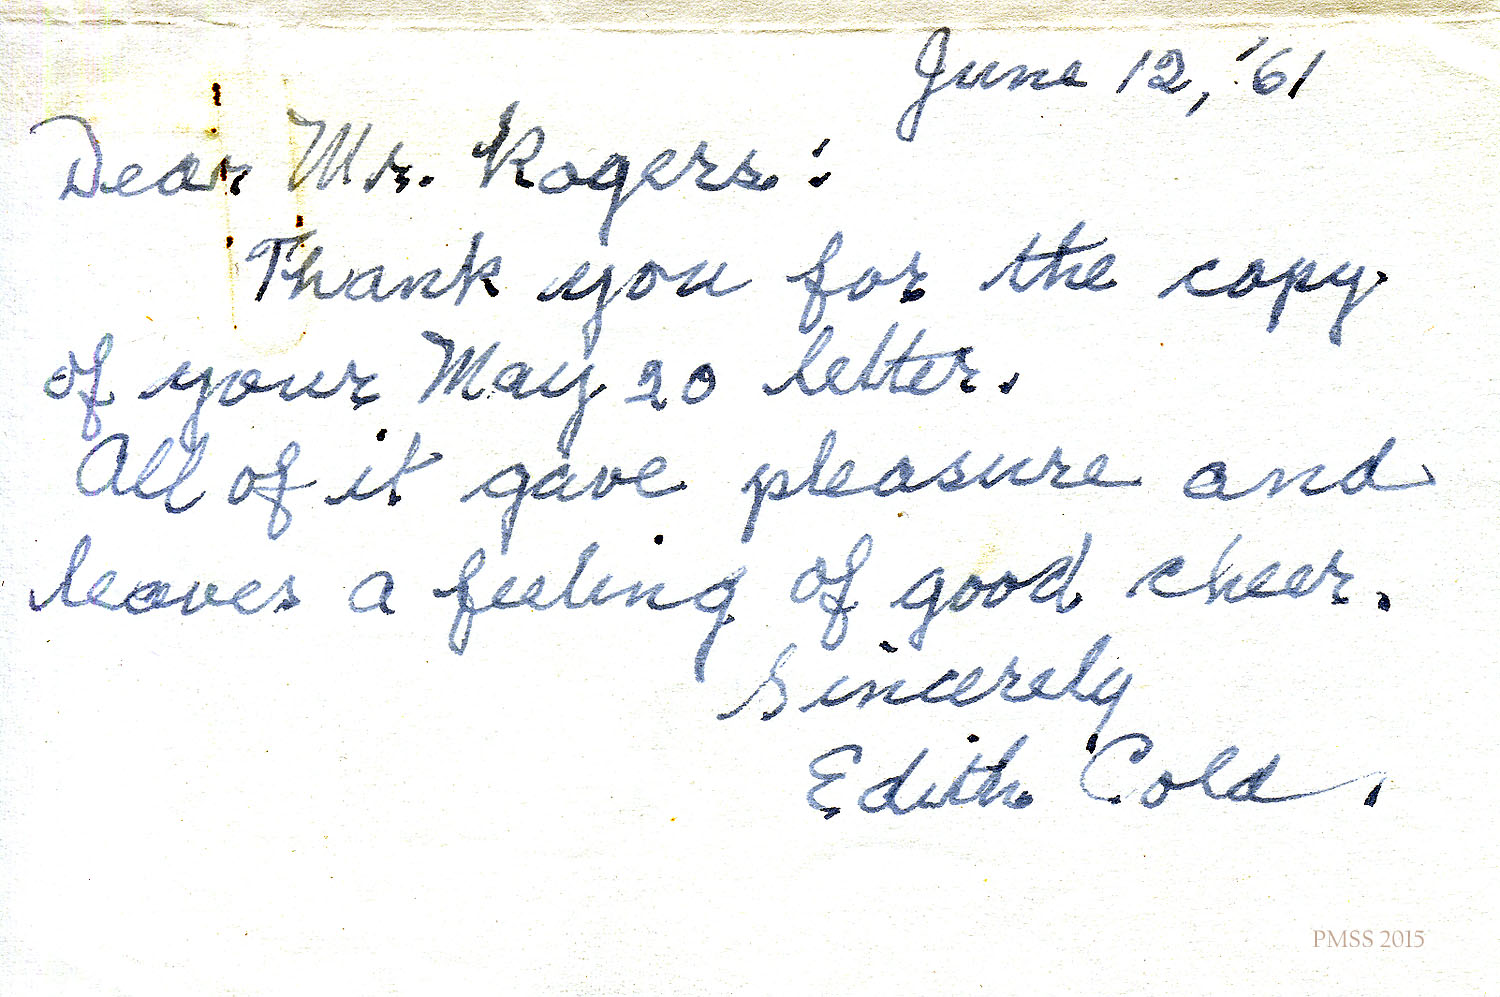 June 12, '61
Dear Mr. Rogers:
Thank you for the copy
of your May 20 letter.
All of it gave pleasure and
leaves a feeling of good cheer.
Sincerely
Edith Cold.
PMSS 2015